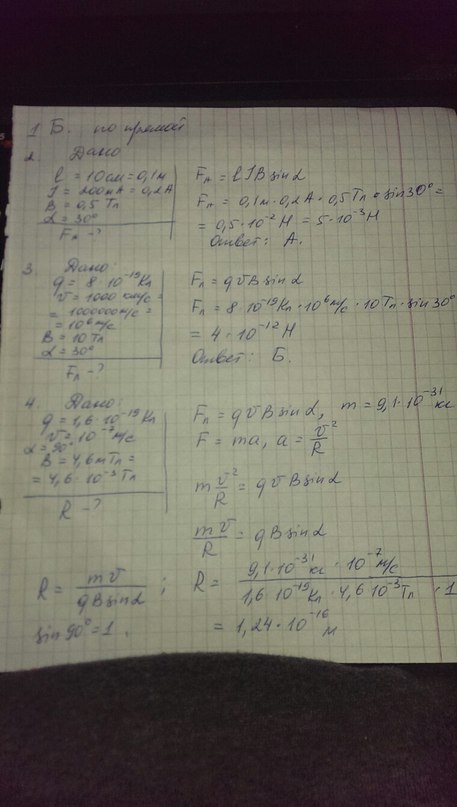 1 Б. по прямой
2. Дано
l = 10см = 0,1м
I = 200мА = 0,2А
B = 0,5 Тл
α = 30°
Fл - ?
Fл = lIB sin α
Fл = 0,1м · 0,2А · 0,5Тл · sin30° =
= 0,5·10⁻² Н = 5·10⁻³ Н
Ответ: А.
3. Дано:
q = 8·10⁻¹⁹ Кл
v = 1000 км/с =
= 1000000м/с =
= 10⁶ м/с
B = 10 Тл
α = 30°
Fл - ?
Fл = qvB sin α
Fл = 8·10⁻¹⁹Кл · 10⁶ м/с · 10Тл · sin 30°
= 4·10⁻¹² Н
Ответ: Б.
4. Дано:
q = 1,6·10⁻¹⁹ Кл
v = 10⁻⁷ м/с
α = 90°
B = 4,6мТл =
= 4,6·10⁻³ Тл
R - ?
Fл = qvB sin α, m = 9,1·10⁻³¹ кг
F = ma, a = v²/R
m v²/R = qvB sin α
mv/R = qB sin α
R = mv/qB sin α ; R = 9,1·10⁻³¹кг · 10⁻⁷ м/с / 1,6·10⁻¹⁹Кл · 4,6·10⁻³Тл · 1
sin 90° = 1.
= 1,24·10⁻¹⁶ м